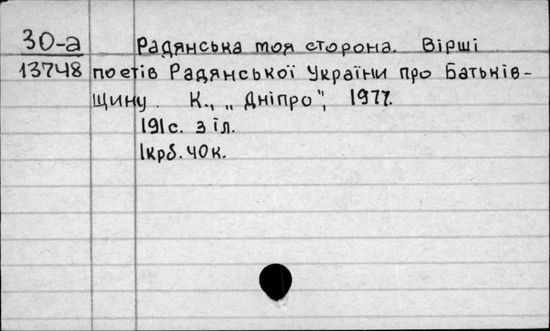 30-а
13748
Радянська моя сторона. Вірші
поетів Радянської України про Батьків-
щину. К., „Дніпро", 1977.
191с. з іл.
1крб. 40к.